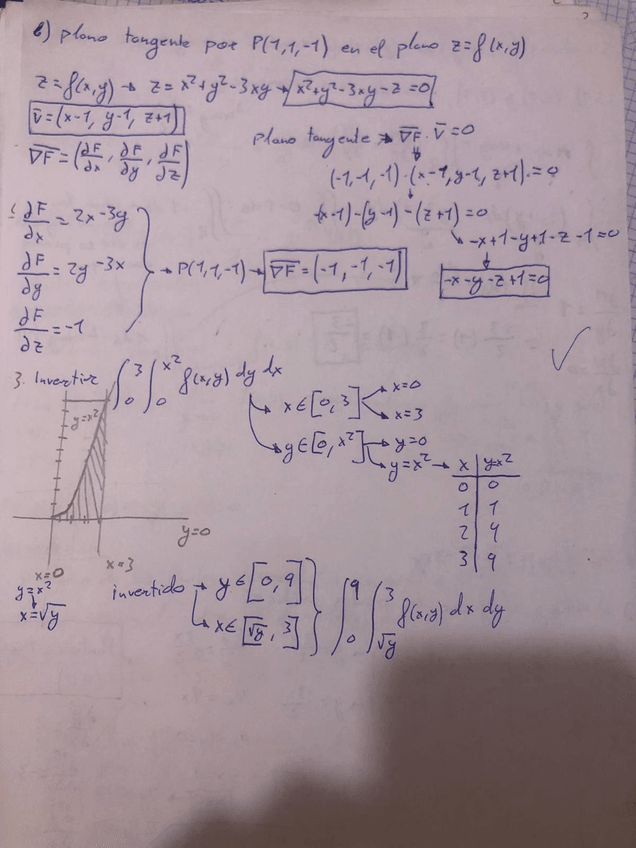 b) plano tangente por P(1,1,-1) en el plano z=f(x,y)
z=f(x,y) → z=x²+y²-3xy → x²+y²-3xy-z=0
v̄=(x-1, y-1, z+1)
plano tangente → ∇F·v̄=0
∇F=(∂F/∂x, ∂F/∂y, ∂F/∂z)
(-1,-1,-1)·(x-1,y-1,z+1)=0
-(x-1)-(y-1)-(z+1)=0
∂F/∂x=2x-3y
-x+1-y+1-z-1=0
∂F/∂y=2y-3x → P(1,1,-1) → ∇F=(-1,-1,-1)
-x-y-z+1=0
∂F/∂z=-1
3. Invertir ∫₀³ ∫₀^x² f(x,y) dy dx
x∈[0,3] → x=0
→ x=3
y∈[0,x²] → y=0
→ y=x² → x | y=x²
0 | 0
1 | 1
2 | 4
3 | 9
y=x²
y=0
x=0
x=3
y=x²
x=√y
invertido → y∈[0,9]
x∈[√y,3]
∫₀⁹ ∫_√y³ f(x,y) dx dy